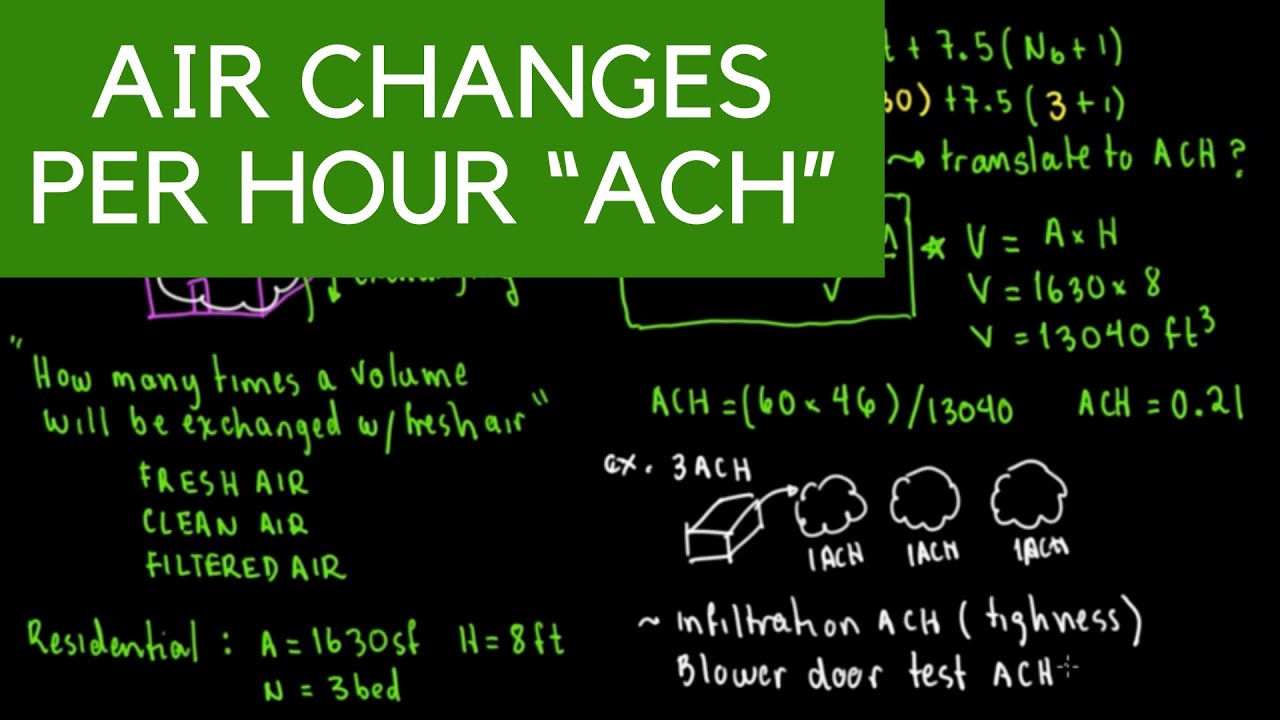 AIR CHANGES
PER HOUR “ACH”
+ 7.5 (Nb + 1)
30) +7.5 ( 3 + 1)
~> translate to ACH?
V = A x H
V = 1630 x 8
V = 13040 ft³
V
"How many times a volume
will be exchanged w/ fresh air"
FRESH AIR
CLEAN AIR
FILTERED AIR
Residential : A = 1630sf H = 8ft
N = 3bed
ACH = (60 x 46) / 13040 ACH = 0.21
ex. 3 ACH
1ACH 1ACH 1ACH
~ Infiltration ACH ( tighness)
Blower door test ACH